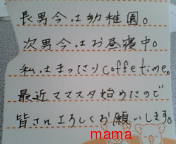 長男今は幼稚園。
次男今はお昼寝中。
私はまったりcoffetime。
最近ママスタ始めたので
皆さまよろしくお願いします。
mama